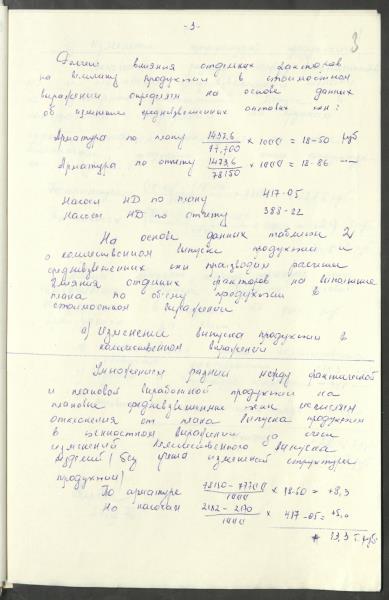 -3-
3
Далее влияния отдельных факторов
на величину продукции в стоимостном
выражении определяем на основе данных
об изменении средневзвешенных оптовых цен:
Арматура по плану 1437,6 / 77,700 × 1000 = 18-50 руб
Арматура по отчету 1473,6 / 78150 × 1000 = 18-86 —"—
Насосы НД по плану 417-05
Насосы НД по отчету 388-22
На основе данных таблицы 2
о количественном выпуске продукции и
средневзвешенных цен производим расчеты
влияния отдельных факторов на выполнение
плана по объему продукции в
стоимостном выражении
а) Изменение выпуска продукции в
количественном выражении
Умножением разниц между фактической
и плановой выработкой продукции на
плановые средневзвешенные цены исчисляем
отклонения от плана выпуска продукции
в ценностном выражении за счет
изменений количественного выпуска
изделий (без учета изменений структуры
продукции)
По арматуре 78150 - 77700 / 1000 × 18-50 = +8,3
По насосам 2182 - 2170 / 1000 × 417-05 = +5,0
+ 13,3 т.руб.